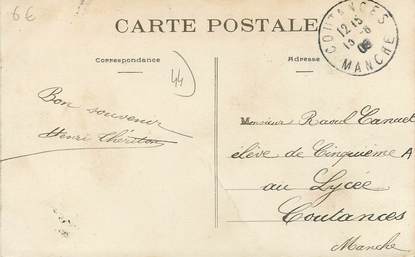 6€
CARTE POSTALE
Correspondance
Adresse
COUTANCES
MANCHE
12 15
15-8
08
44
Bon souvenir
Henri Thériton
Monsieur Raoul Canuet
élève de Cinquième A
au Lycée
Coutances
Manche